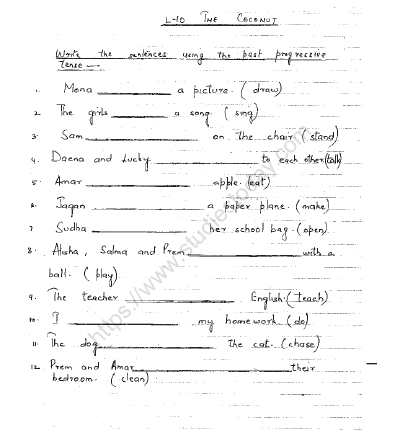 L-10 The Coconut
Write the sentences using the past progressive
tense —
1. Mona ____________ a picture. (draw)
2. The girls ____________ a song. (sing)
3. Sam ____________ on the chair. (stand)
4. Daena and Lucky ____________ to each other. (talk)
5. Amar ____________ apple. (eat)
6. Jagan ____________ a paper plane. (make)
7. Sudha ____________ her school bag. (open)
8. Alisha, Salma and Prem ____________ with a
ball. (play)
9. The teacher ____________ English. (teach)
10. I ____________ my homework. (do)
11. The dog ____________ the cat. (chase)
12. Prem and Amar ____________ their
bedroom. (clean)
https://www.studiestoday.com